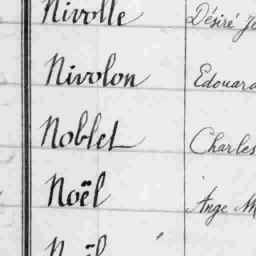 Nivolle Désiré
Nivolon Edouard
Noblet Charles
Noël Ange